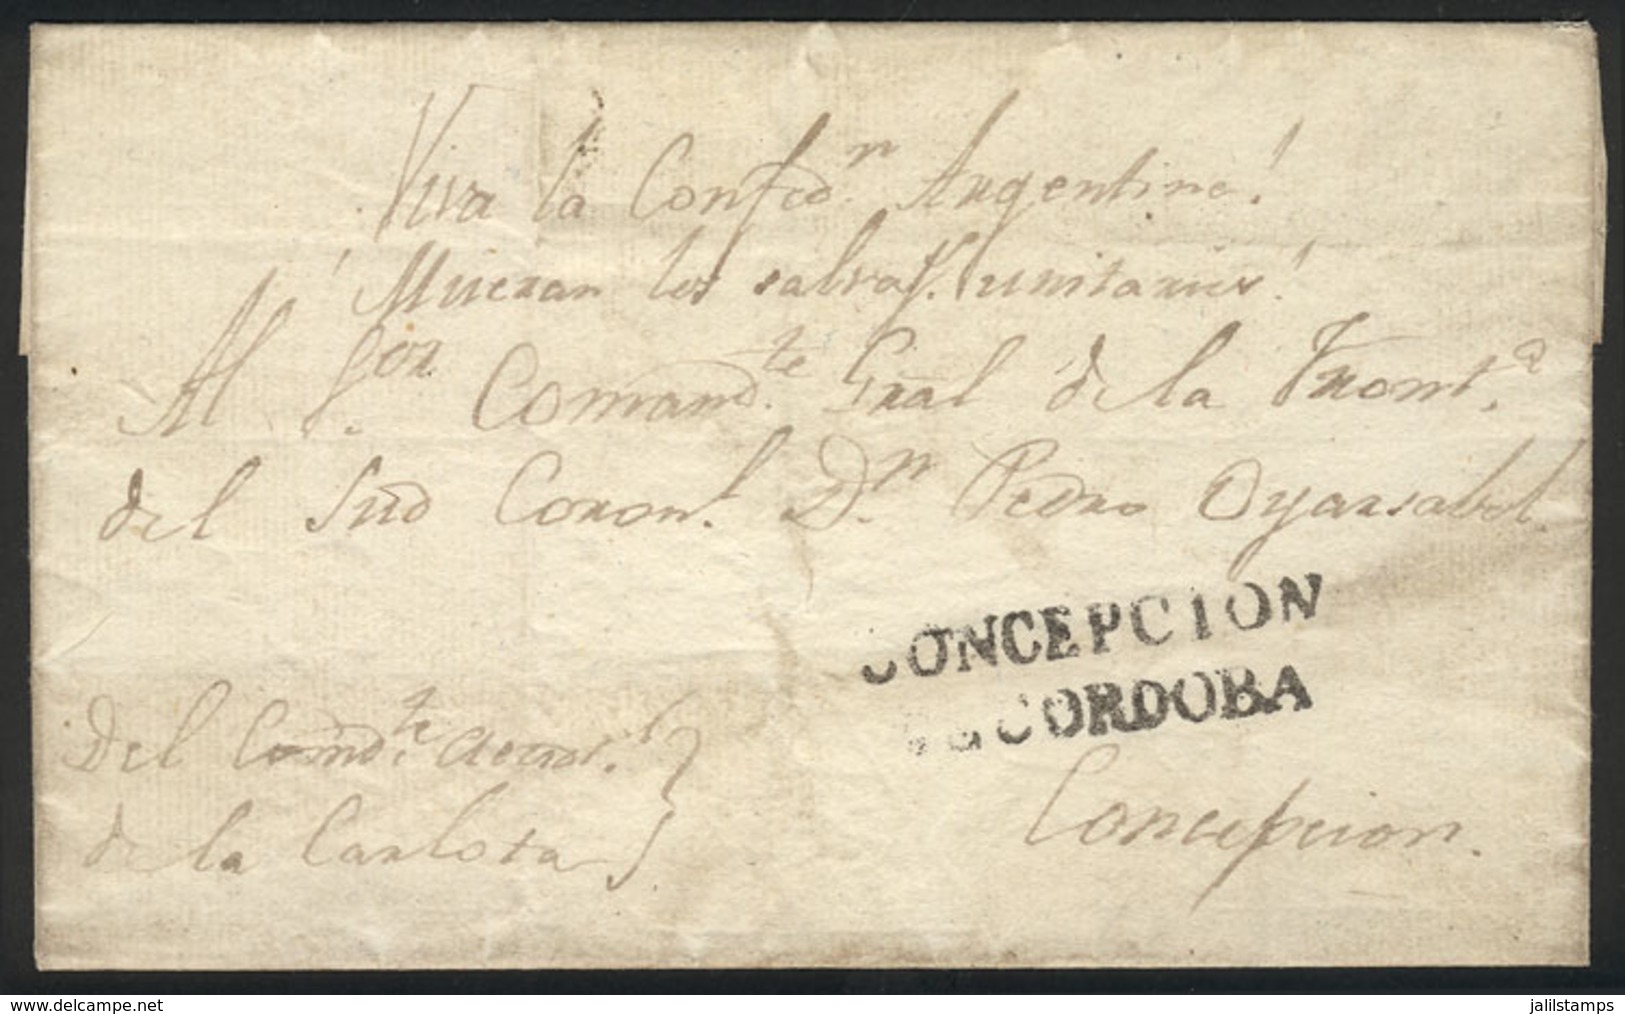 Viva la Confed.n Argentina!
¡Mueran los salvag.s unitarios!
Al S.or Comand.te Gral de la Front.a
del Sud Coron.l D.n Pedro Oyarsabal.
CONCEPCION
DE CORDOBA
Del Comd.te
de la Carlota
Concepcion.
www.delcampe.net
jalilstamps